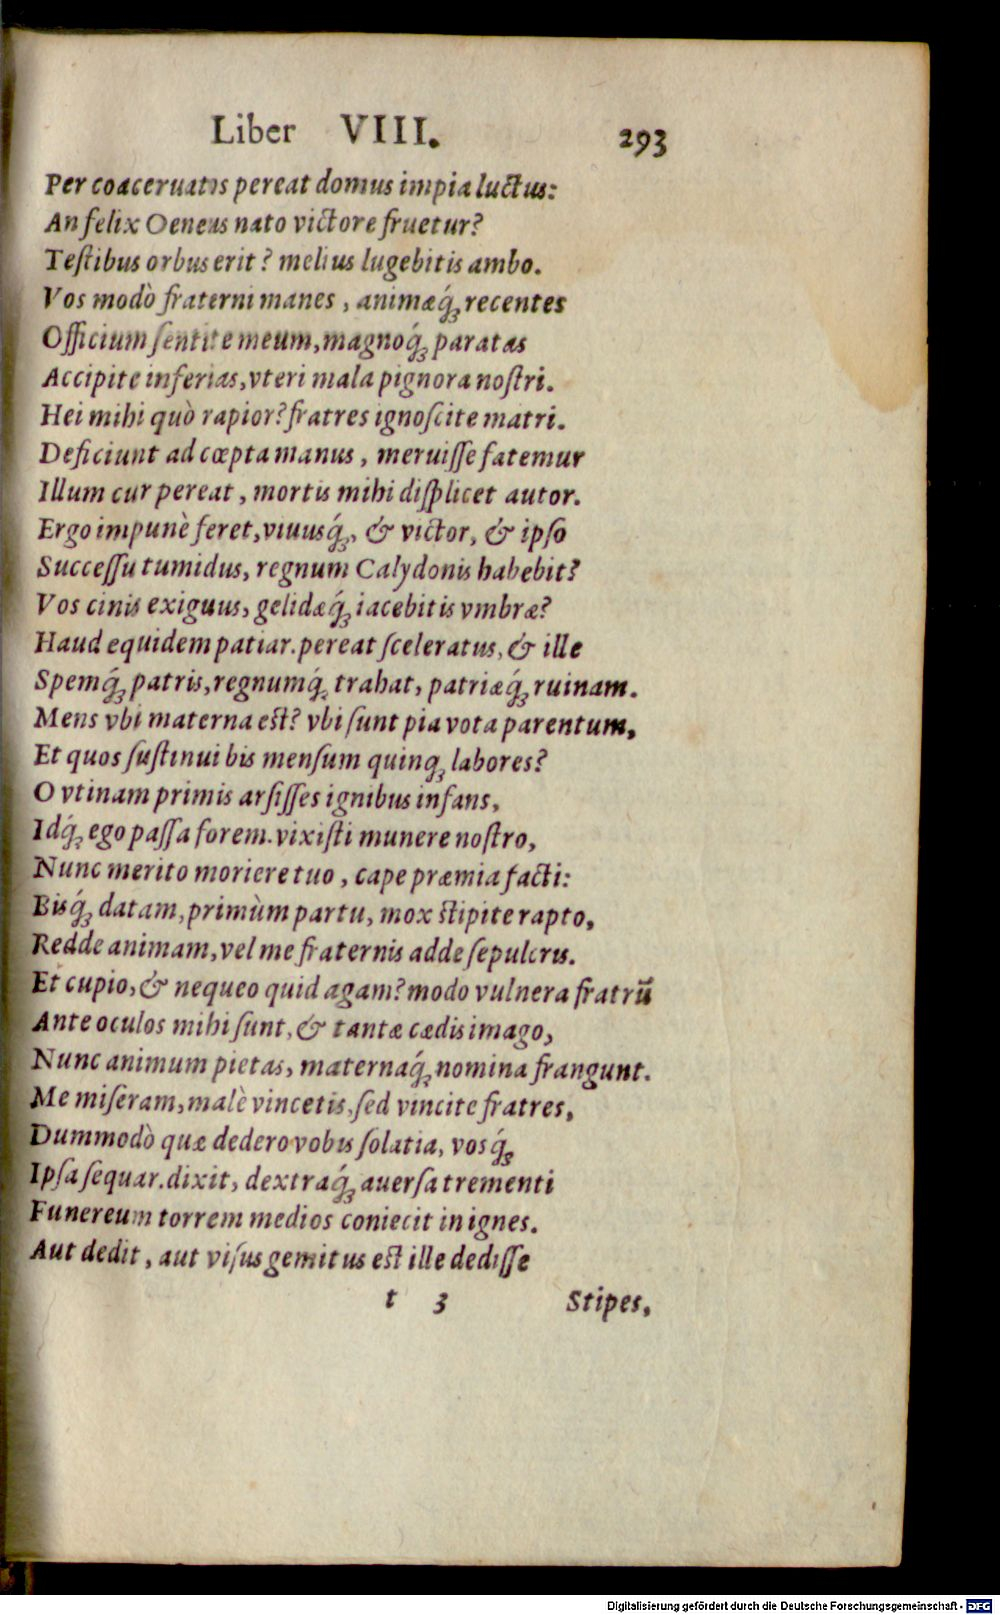 Liber VIII. 293
Per coaceruatos pereat domus impia luctus:
An felix Oeneus nato victore fruetur?
Testibus orbus erit? melius lugebitis ambo.
Vos modò fraterni manes, animæq́ꝫ recentes
Officium ſentite meum, magnoq́ꝫ paratas
Accipite inferias, vteri mala pignora noſtri.
Hei mihi quò rapior? fratres ignoſcite matri.
Deficiunt ad cœpta manus, meruiſſe fatemur
Illum cur pereat, mortis mihi diſplicet autor.
Ergo impunè feret, viuusq́ꝫ, & victor, & ipſo
Succeſſu tumidus, regnum Calydonis habebit?
Vos cinis exiguus, gelidæq́ꝫ iacebitis vmbræ?
Haud equidem patiar. pereat ſceleratus, & ille
Spemq́ꝫ patris, regnumq́ꝫ trahat, patriæq́ꝫ ruinam.
Mens vbi materna est? vbi ſunt pia vota parentum,
Et quos ſuſtinui bis menſum quinqꝫ labores?
O vtinam primis arſiſſes ignibus infans,
Idq́ꝫ ego paſſa forem. vixiſti munere noſtro,
Nunc merito moriere tuo, cape præmia facti:
Bisq́ꝫ datam, primùm partu, mox stipite rapto,
Redde animam, vel me fraternis adde ſepulcris.
Et cupio, & nequeo quid agam? modo vulnera fratrũ
Ante oculos mihi ſunt, & tantæ cædis imago,
Nunc animum pietas, maternaq́ꝫ nomina frangunt.
Me miſeram, malè vincetis, ſed vincite fratres,
Dummodò quæ dedero vobis ſolatia, vosq́ꝫ
Ipſa ſequar. dixit, dextraq́ꝫ auerſa trementi
Funereum torrem medios coniecit in ignes.
Aut dedit, aut viſus gemitus est ille dediſſe
t 3 Stipes,
Digitalisierung gefördert durch die Deutsche Forschungsgemeinschaft - DFG